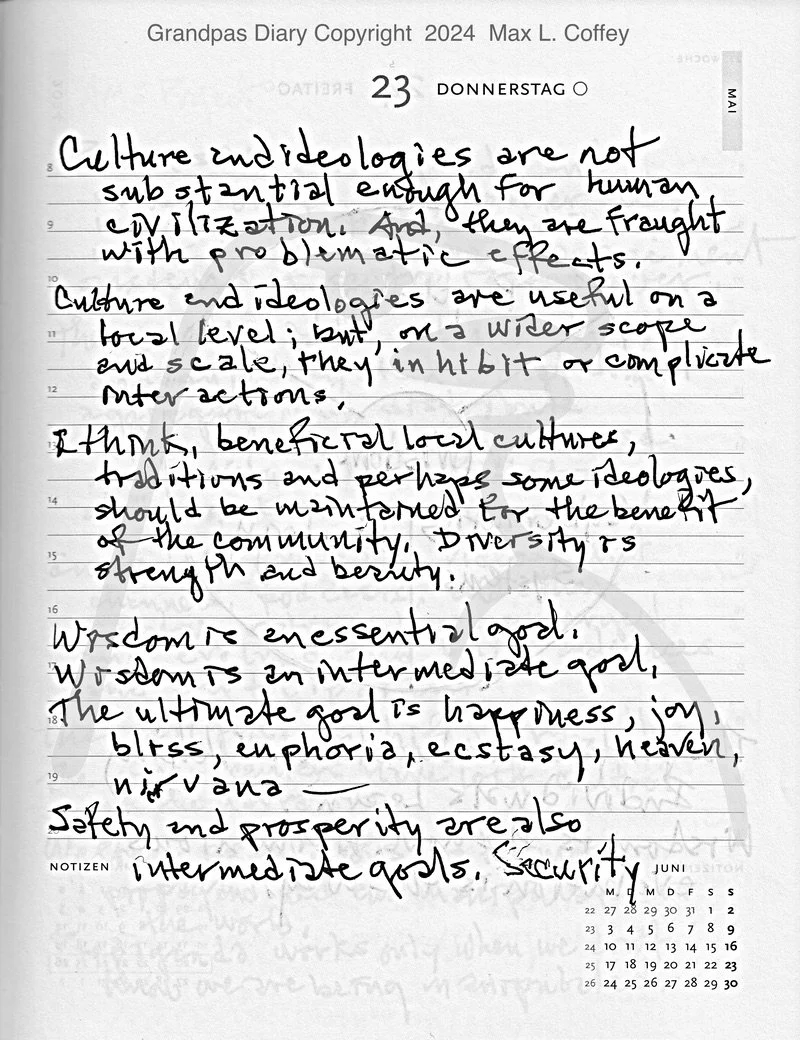 Grandpas Diary Copyright 2024 Max L. Coffey
23 DONNERSTAG
MAI
8 Culture and ideologies are not
substantial enough for human
9 civilization. And, they are fraught
with problematic effects.
10 Culture and ideologies are useful on a
11 local level; but, on a wider scope
and scale, they inhibit or complicate
12 interactions.
13 I think, beneficial local cultures,
traditions and perhaps some ideologies,
14 should be maintained for the benefit
of the community. Diversity is
15 strength and beauty.
16 Wisdom is an essential goal.
17 Wisdom is an intermediate goal.
18 The ultimate goal is happiness, joy,
bliss, euphoria, ecstasy, heaven,
19 nirvana —
Safety and prosperity are also
NOTIZEN intermediate goals. Security
JUNI
M D M D F S S
22 27 28 29 30 31 1 2
23 3 4 5 6 7 8 9
24 10 11 12 13 14 15 16
25 17 18 19 20 21 22 23
26 24 25 26 27 28 29 30